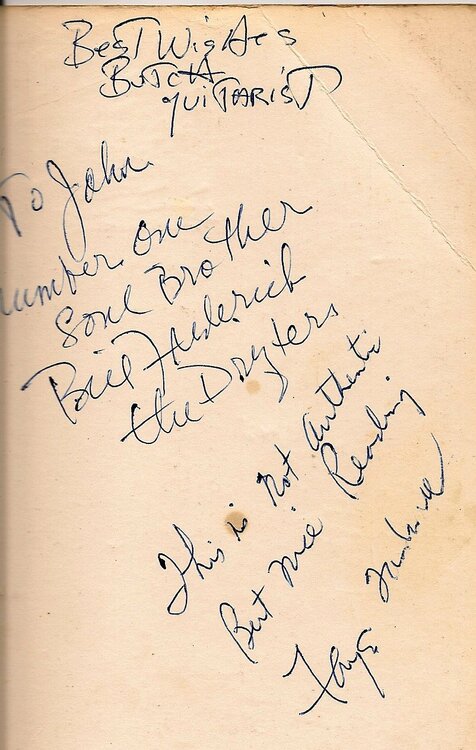 Best Wishes
Butch
guitarist
To John
number one
Soul Brother
Bill Frederick
the Drifters
This is not authentic
But nice Reading
Faye